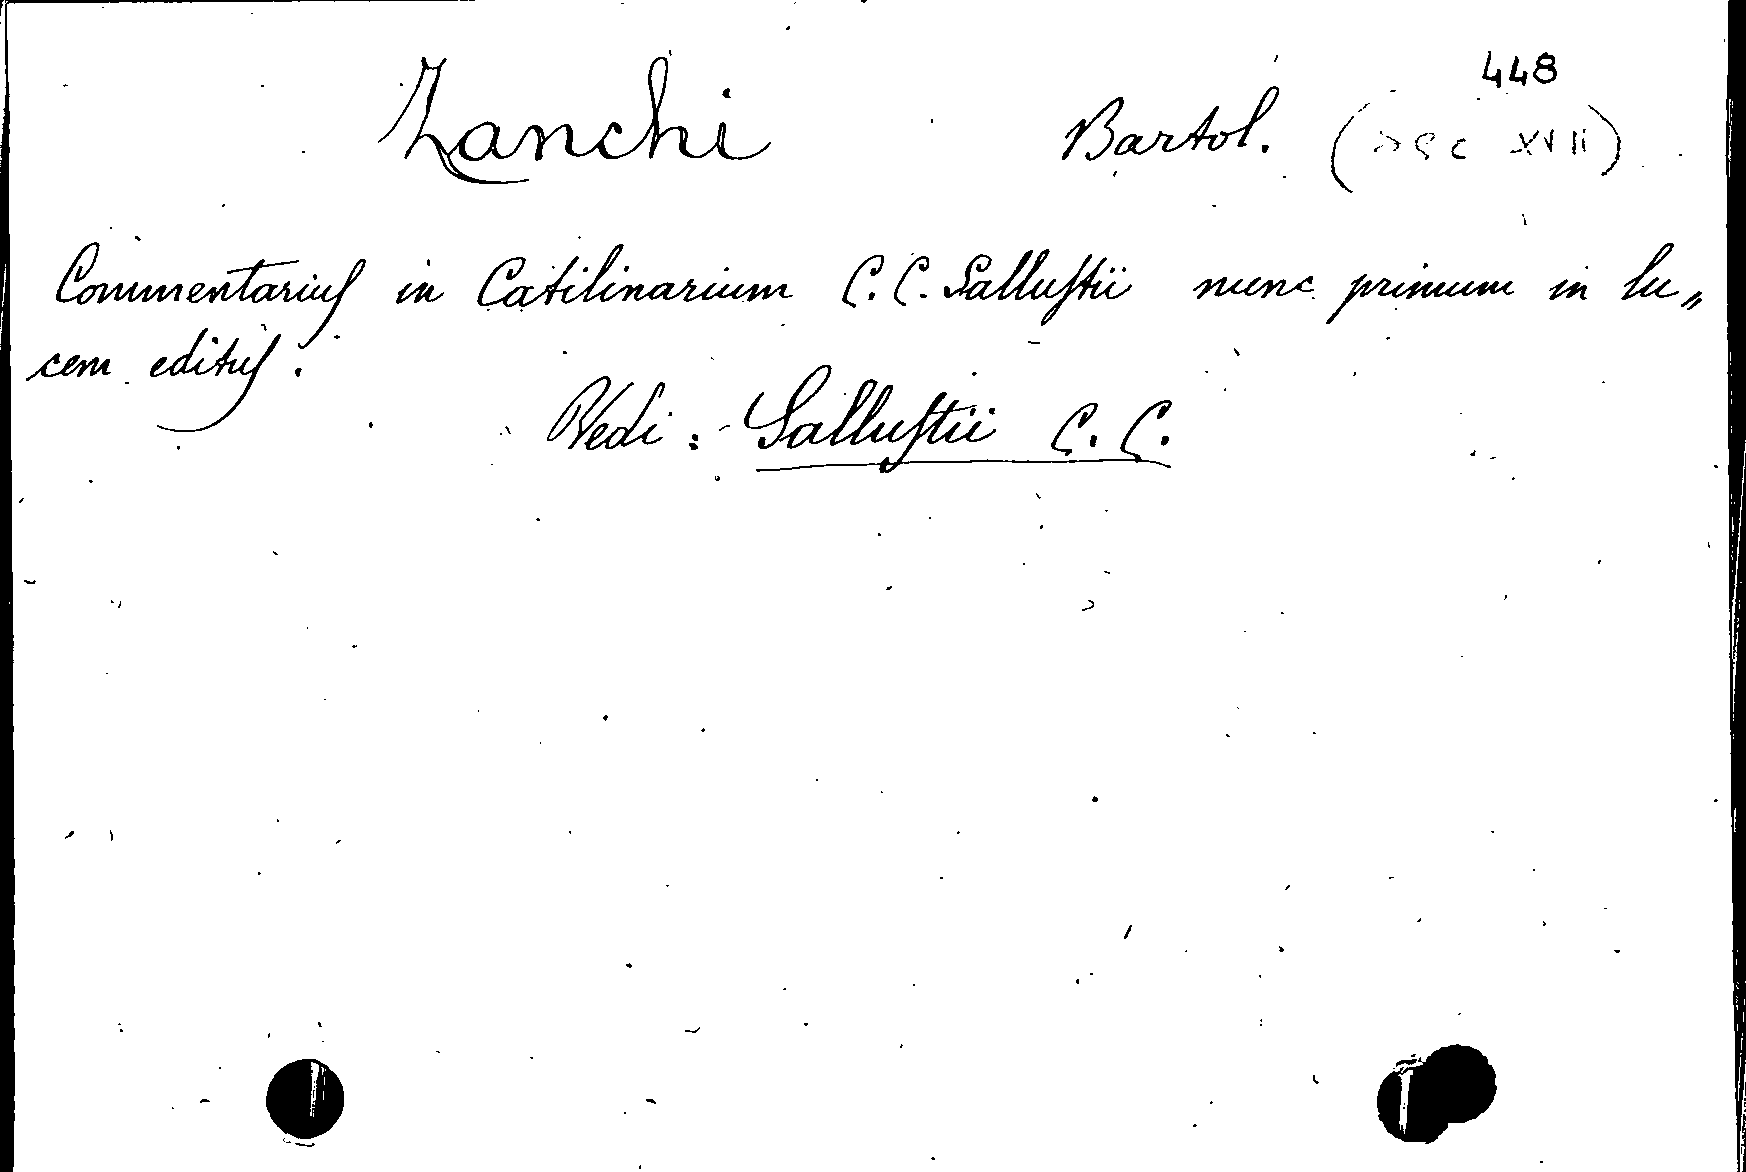 448
Zanchi Bartol. (sec XVII)
Commentarius in Catilinarium C. C. Sallustii nunc primum in lu„
cem editus.
Vedi: Sallustii C. C.